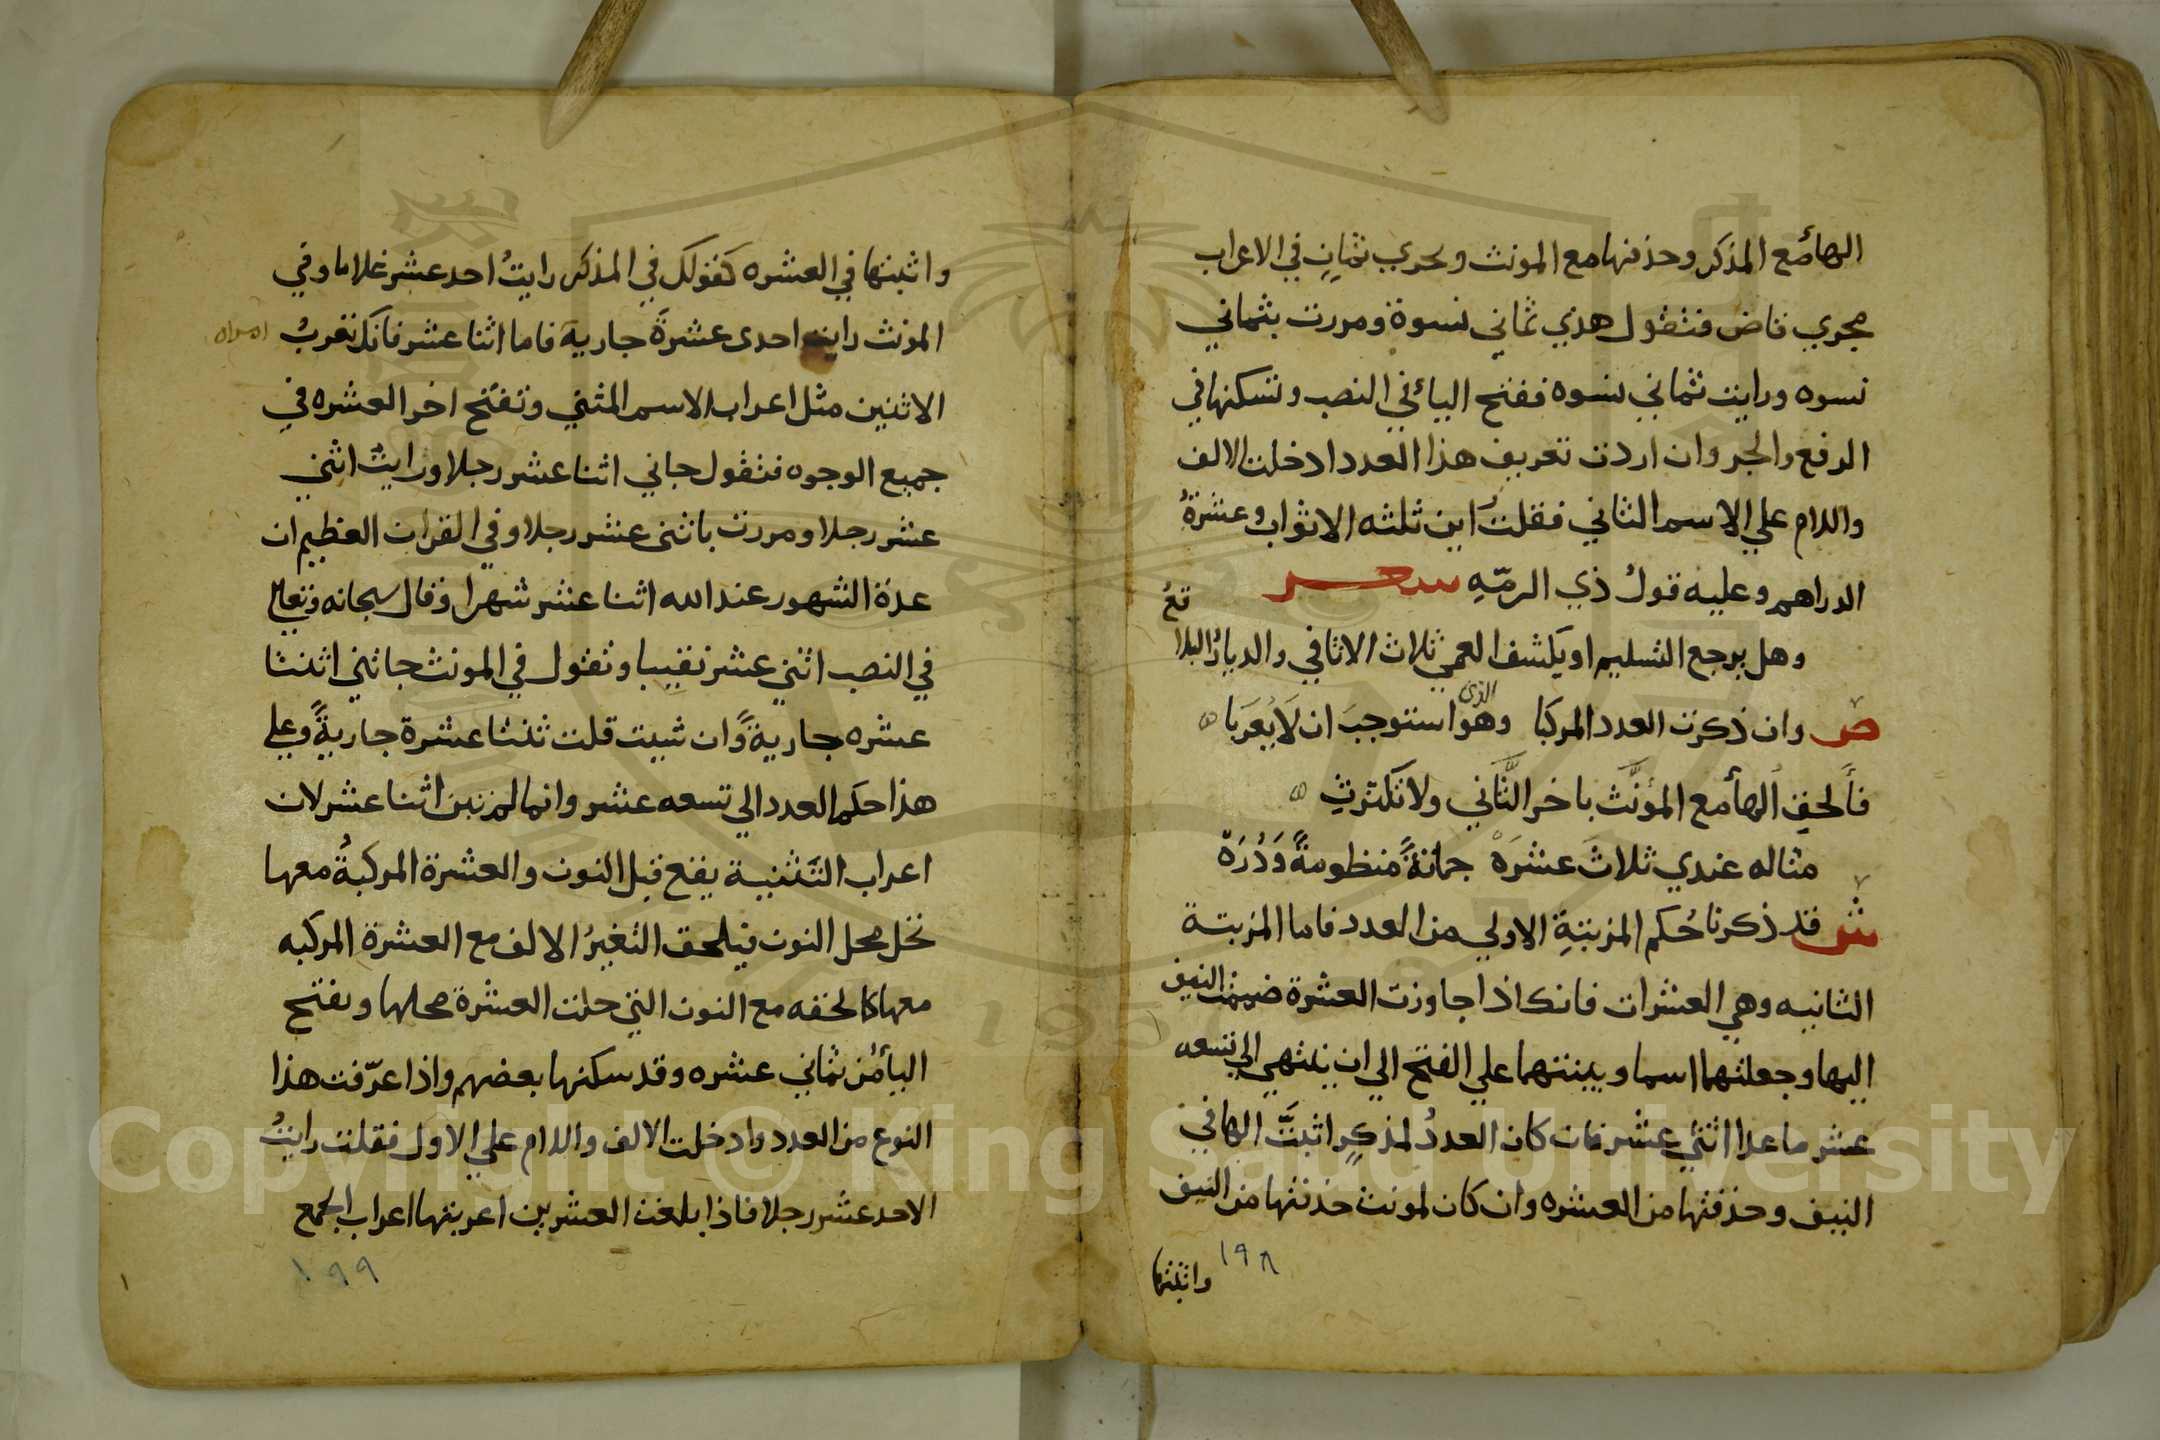 الهاء مع المذكر وحذفها مع المونث ويجري ثمان في الاعراب
مجري قاض فتقول هذي ثماني نسوة ومررت بثماني
نسوه ورايت ثماني نسوه ففتح الياء في النصب وتسكنها في
الرفع والجر وان اردت تعريف هذا العدد ادخلت الالف
واللام علي الاسم الثاني فقلت اين ثلثه الاثواب وعشرة
الدراهم وعليه قول ذي الرمّهِ شعر
وهل يرجع التسليم او يكشف العمي ثلاث الاثافي والديار البلا
قع
ص وان ذكرت العدد المركبا وهو الذي استوجبَ ان لَا يُعرَبا
فألحقِ الهاء مع المؤنَّث باخر الثَّاني ولا تكترثِ
مثاله عندي ثلاثَ عشرَهْ جمانةً منظومةً وَدُرَهّ
ش قد ذكرنا حُكم المرتبَةِ الاولي من العدد فاما المرتبة
الثانيه وهي العشرات فانك اذا جاوزت العشرة ضممت النيف
اليها وجعلتهما اسما وبينتهما علي الفتح الي ان ينتهي الي تسعه
عشر ما عدا اثني عشر فان كان العددُ لمذكرٍ اثبتَّ الها في
النيف وحذفتها من العشره وان كان لمونث حذفتها من النيف
واثبتها
١٩٨
واثبتها في العشره كقولك في المذكر رايتُ احد عشر غلاما وفي
المونث رايت احدى عشرةَ جارية فاما اثنا عشر فانك تعربُ
امراه
الاثنين مثل اعراب الاسم المثني وتفتح اخر العشره في
جميع الوجوه فتقول جاني اثنا عشر رجلا ورايتُ اثني
عشر رجلا ومررت باثنى عشر رجلا وفي القران العظيم ان
عدة الشهور عند الله اثنا عشر شهرا وقال سبحانه وتعالي
في النصب اثني عشر نقيبا وتقول في المونث جاتني اثنتا
عشره جاريةً وان شيت قلت ثنتا عشرة جاريةً وعلي
هذا حكم العدد الي تسعه عشر وانما لم تبن اثنا عشر لان
اعراب التَّثنية يقع قبل النون والعشرة المركبةُ معها
تحل محل النون فيلحق التغيرُ الالف مع العشرة المركبه
معها كالحقه مع النون التي حلت العشرة محلها وتفتح
الياء من ثماني عشره وقد سكنها بعضهم واذا عرّفت هذا
النوع من العدد ادخلت الالف واللام علي الاول فقلت رايتُ
الاحد عشر رجلا فاذا بلغت العشرين اعربتها اعراب الجمع
١٩٩
Copyright © King Saud University